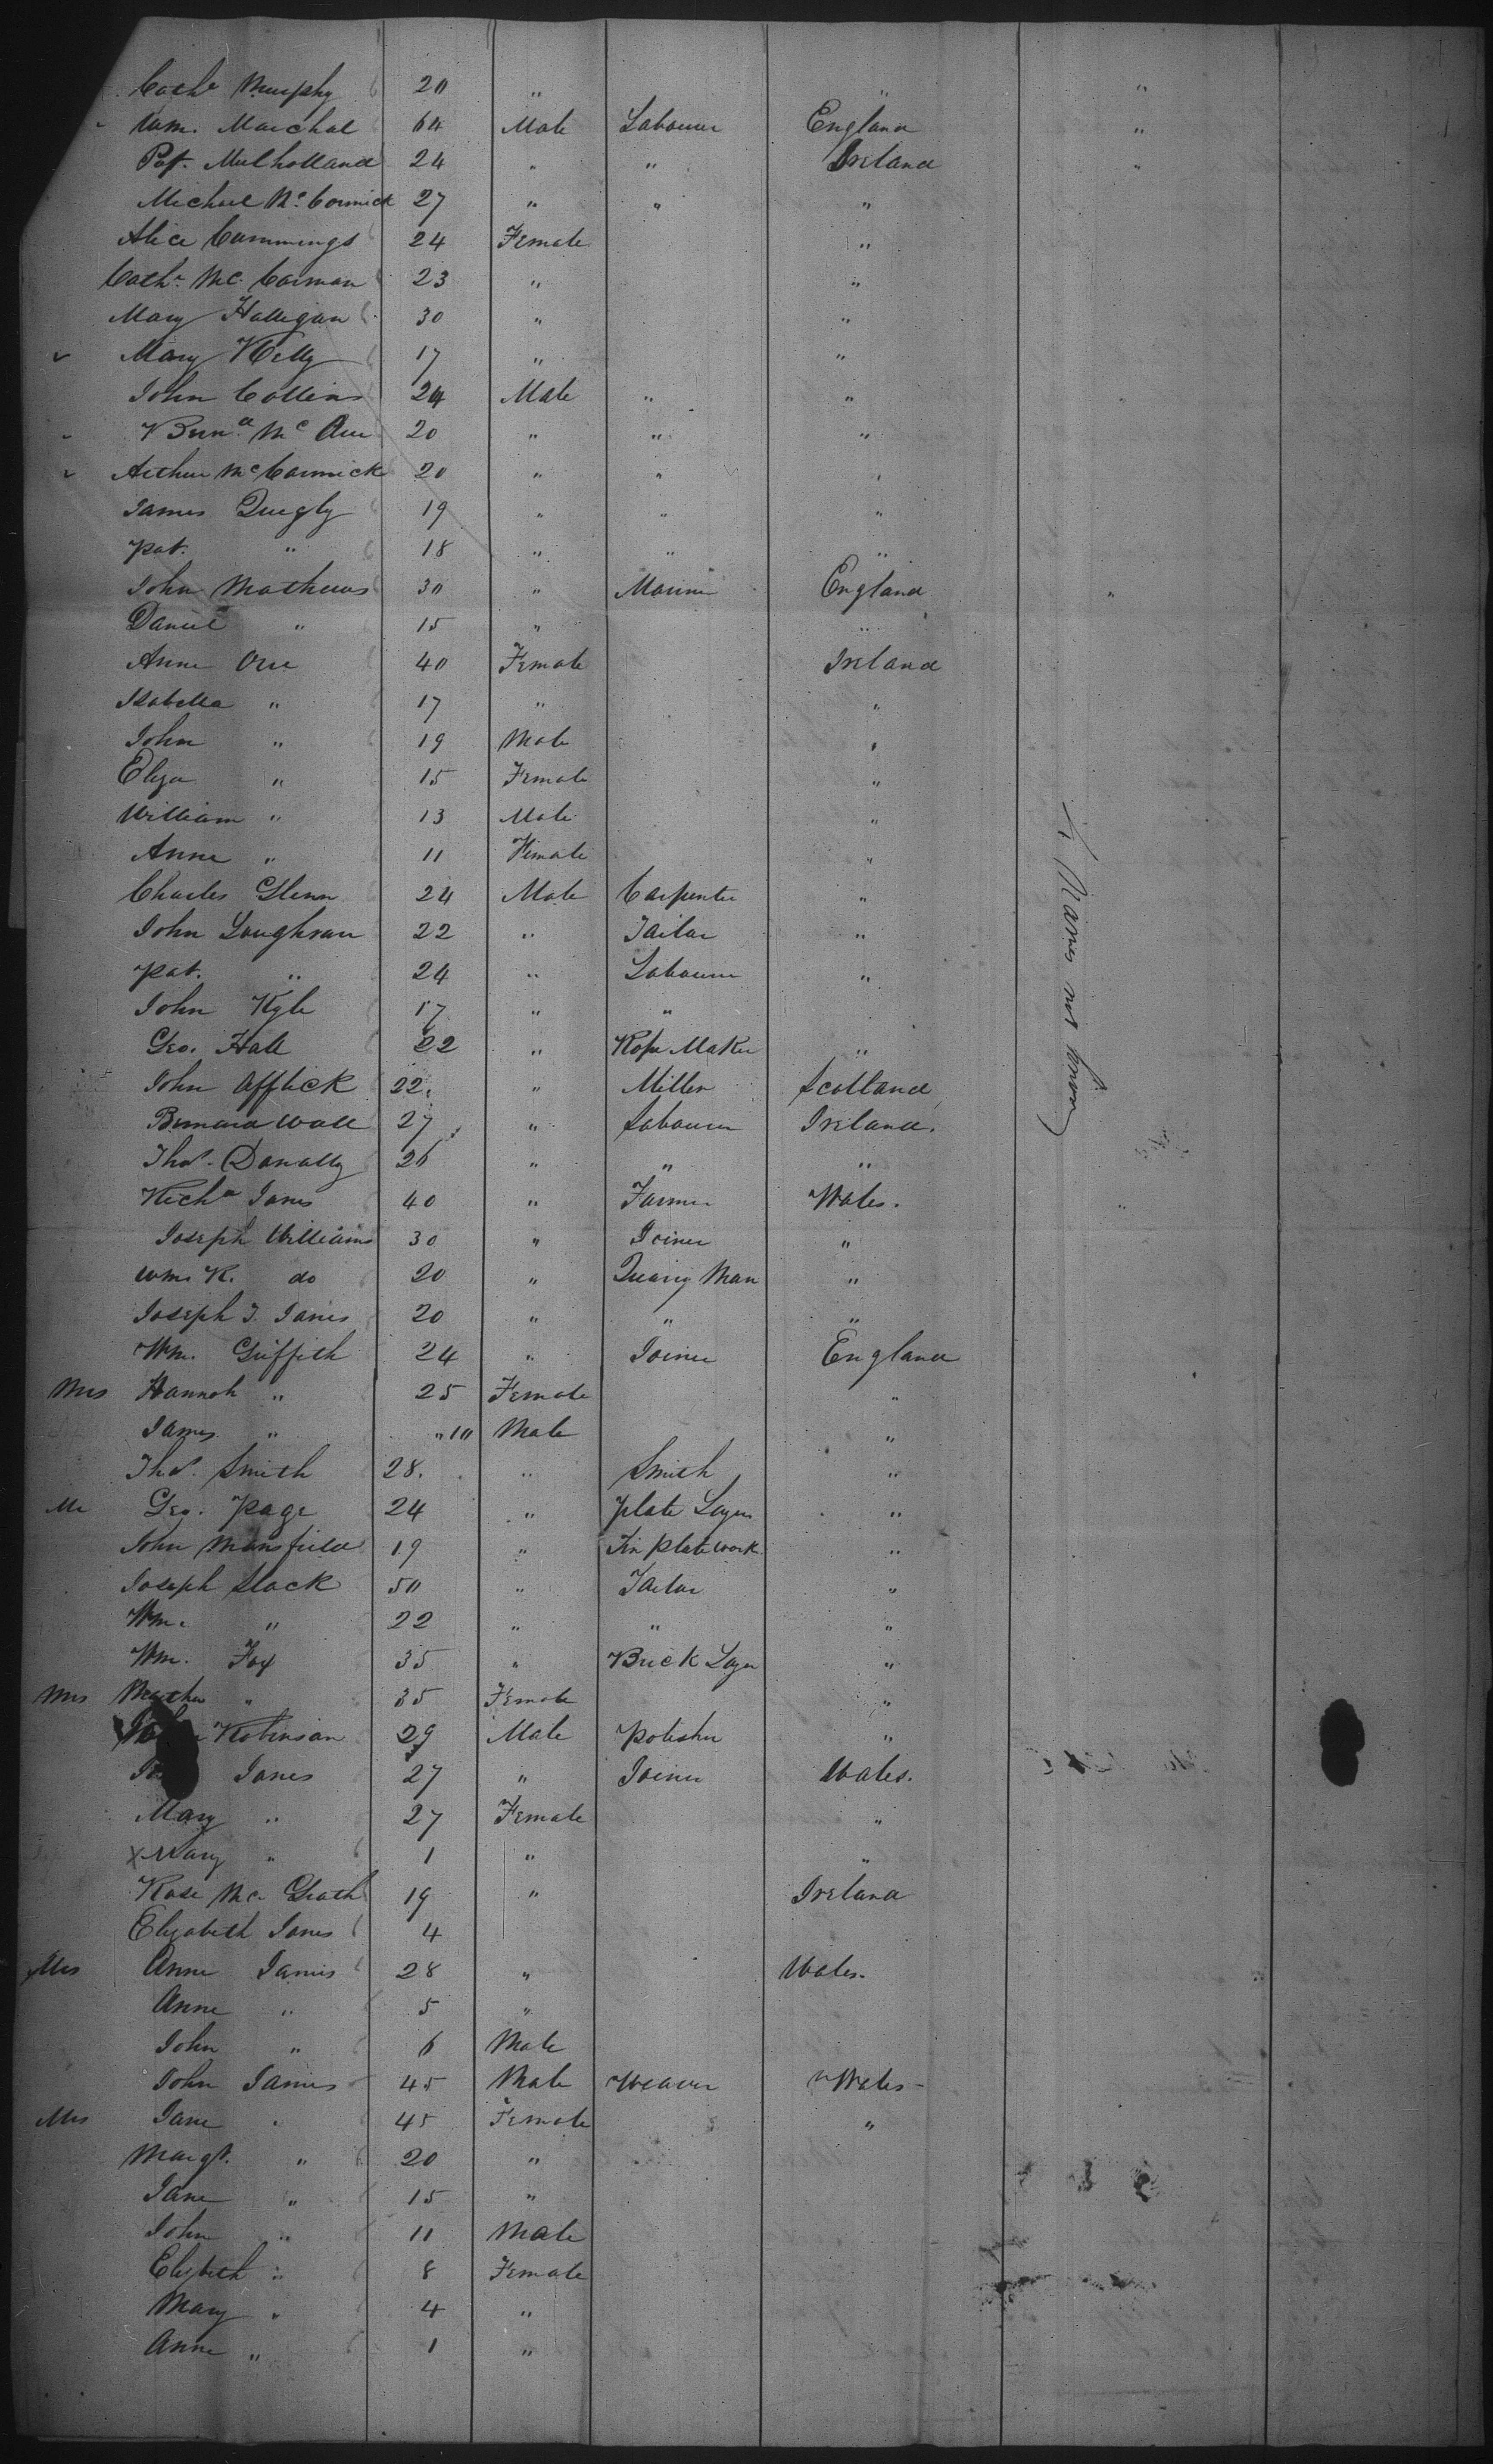 Cathe Murphy 20 " " "
Wm. Marchal 64 Male Labourer England "
Pat. Mulholland 24 " " Ireland "
Michael Mc Cormick 27 " " "
Alice Cummings 24 Female "
Cathe Mc. Corman 23 " "
Mary Halligan 30 " "
Mary Kelly 17 " "
John Collins 24 Male " "
Bernd Mc 20 " " "
Arthur Mc Cormick 20 " " "
James Quigly 19 " " "
Pat. " 18 " " "
John Mathews 30 " Mariner England "
Daniel " 15 " "
Anne Orr 40 Female Ireland
Isabella " 17 " "
John " 19 Male "
Eliza " 15 Female "
William " 13 Male "
Anne " 11 Female "
Charles Glenn 24 Male Carpenter "
John Loughran 22 " Tailor "
Pat. " 24 " Labourer "
John Kyle 17 " "
Geo. Hall 22 " Rope Maker "
John Affleck 22. " Miller Scotland
Bernard Wall 27 " Labourer Ireland.
Thos. Donally 26 " " "
Richd Jones 40 " Farmer Wales. "
Joseph Williams 30 " Joiner "
Wm. R. do 20 " Quarry Man "
Joseph J. Jones 20 " " "
Wm. Griffith 24 " Joiner England
Mrs Hannah " 25 Female "
James " " 10 Male "
Thos. Smith 28. " Smith "
Mr Geo. Page 24 " Plate Layer "
John Mansfield 19 " Tin Plate Work. "
Joseph Slack 50 " Tailor "
Wm. " 22 " " "
Wm. Fox 35 " Brick Layer "
Mrs Martha " 35 Female "
Robinson 29 Male Polisher "
Jones 27 " Joiner Wales.
Mary " 27 Female "
x Mary " 1 " "
Rose Mc. Grath 19 " Ireland
Elizabeth Jones 4
Mrs Anne James 28 " Wales.
Anne " 5 "
John " 6 Male
John James 45 Male Weaver Wales
Mrs Jane " 45 Female "
Margt. " 20 "
Jane " 15 "
John " 11 Male
Elizbeth " 8 Female
Mary " 4 "
Anne " 1 "